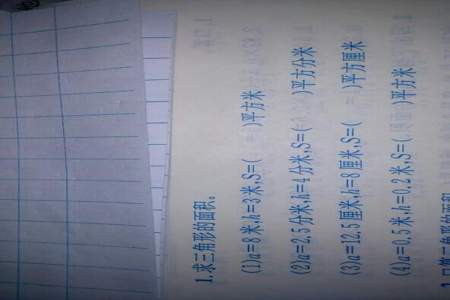 1.求三角形的面积。
(1)a=8米,h=3米,S=( )平方米
(2)a=2.5分米,h=4分米,S=( )平方分米
(3)a=12.5厘米,h=8厘米,S=( )平方厘米
(4)a=0.5米,h=0.2米,S=( )平方米